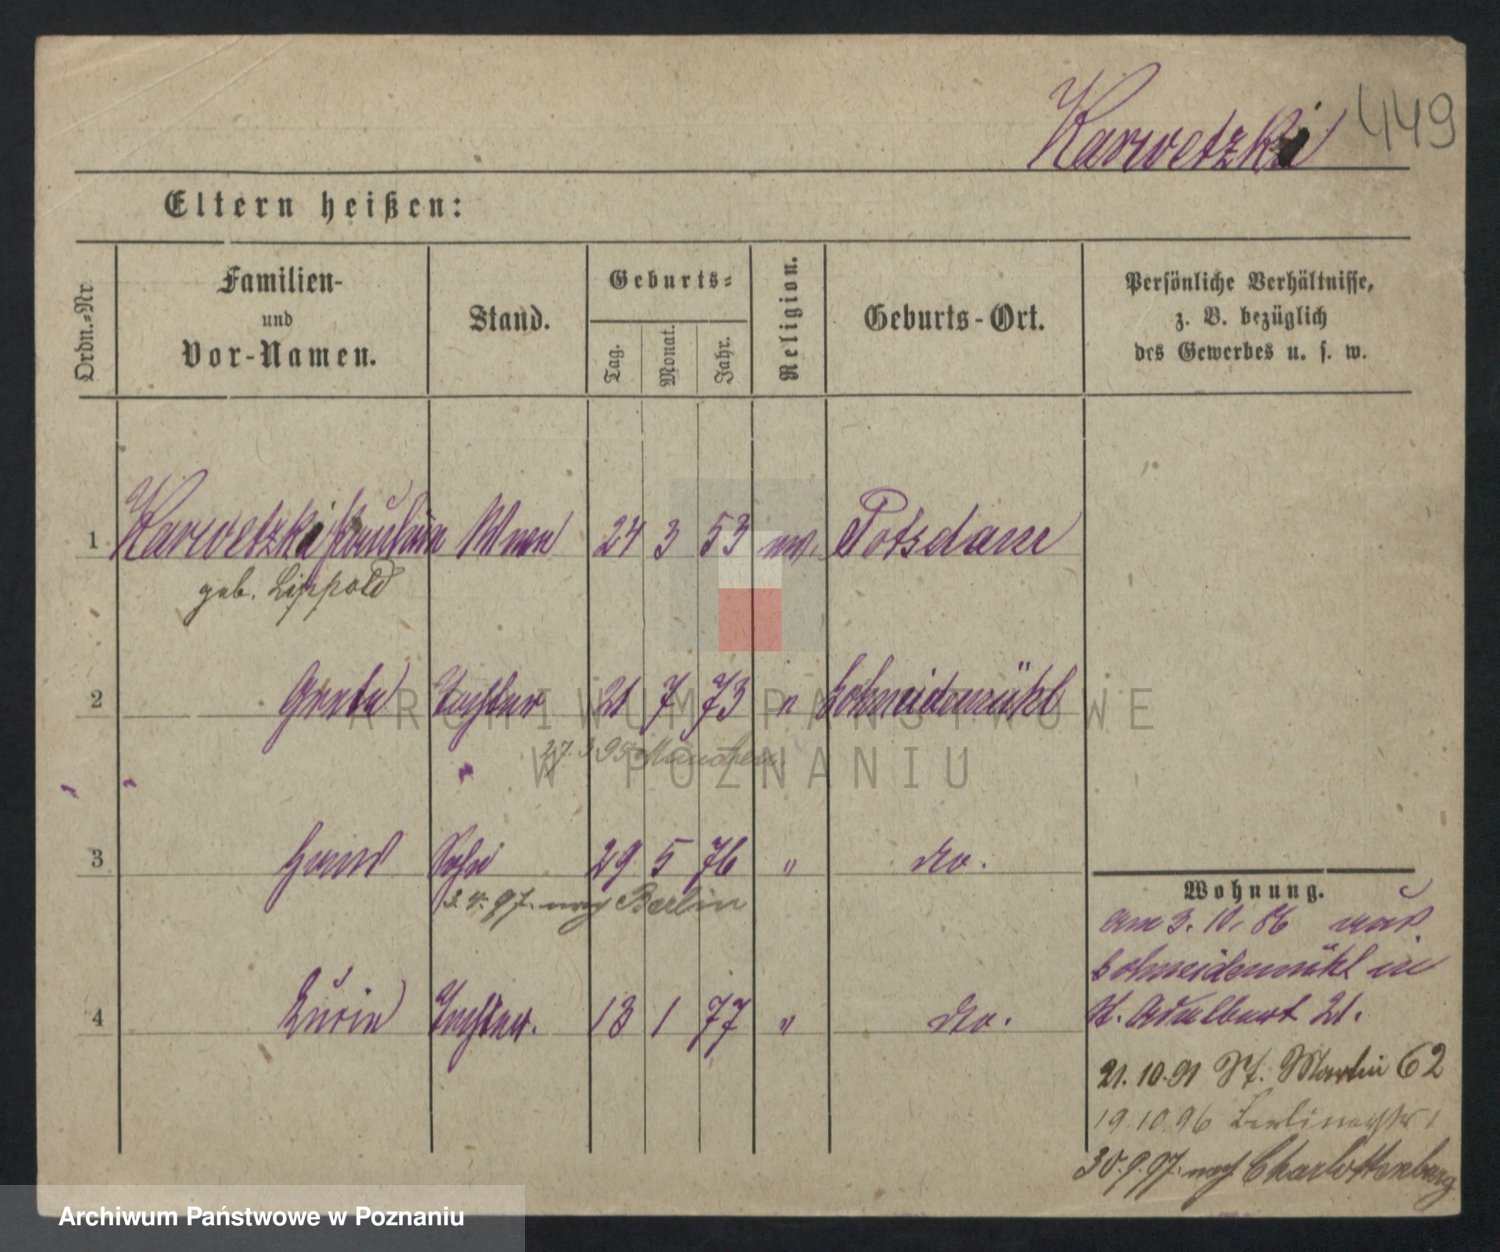 Karwetzki 449
Eltern heißen:
Ordn.-Nr
Familien-
und
Vor-Namen.
Stand.
Geburts-
Tag.
Monat.
Jahr.
Religion.
Geburts-Ort.
Persönliche Verhältnisse,
z. B. bezüglich
des Gewerbes u. s. w.
1 Karwetzki Pauline 24 3 53 ev. Potsdam
geb. Lippold
2 Grete Tochter 21 7 73 " Schneidemühl
27 3 95 München
3 Hans Sohn 29 5 76 " do.
97. nach Berlin
4 Tochter. 13 1 77 " do.
Wohnung.
am 3. 10. 86 aus
Schneidemühl in
St. Adalbert 21.
21. 10. 91 St. Martin 62
19 10 96 Berlinerstr 1
30. 9. 97. nach Charlottenburg
ARCHIWUM PAŃSTWOWE
W POZNANIU
Archiwum Państwowe w Poznaniu